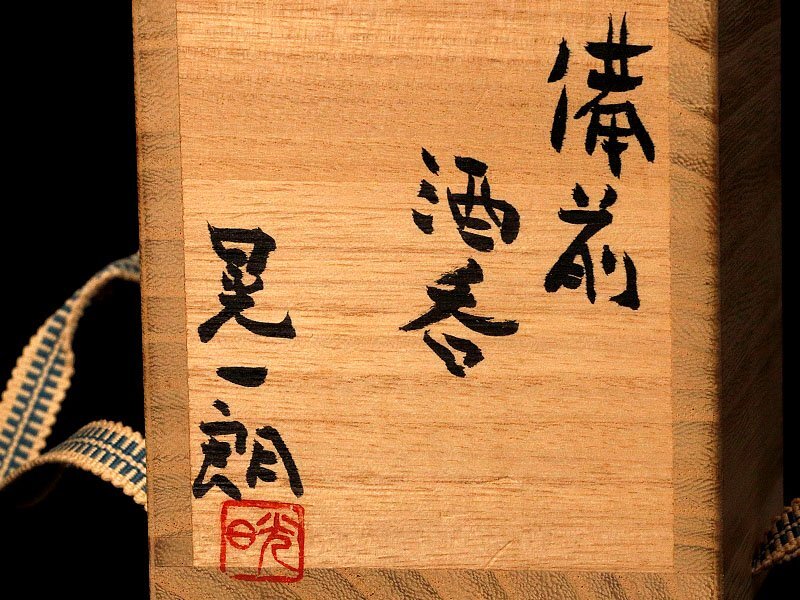 備前
酒呑
晃一朗
晄